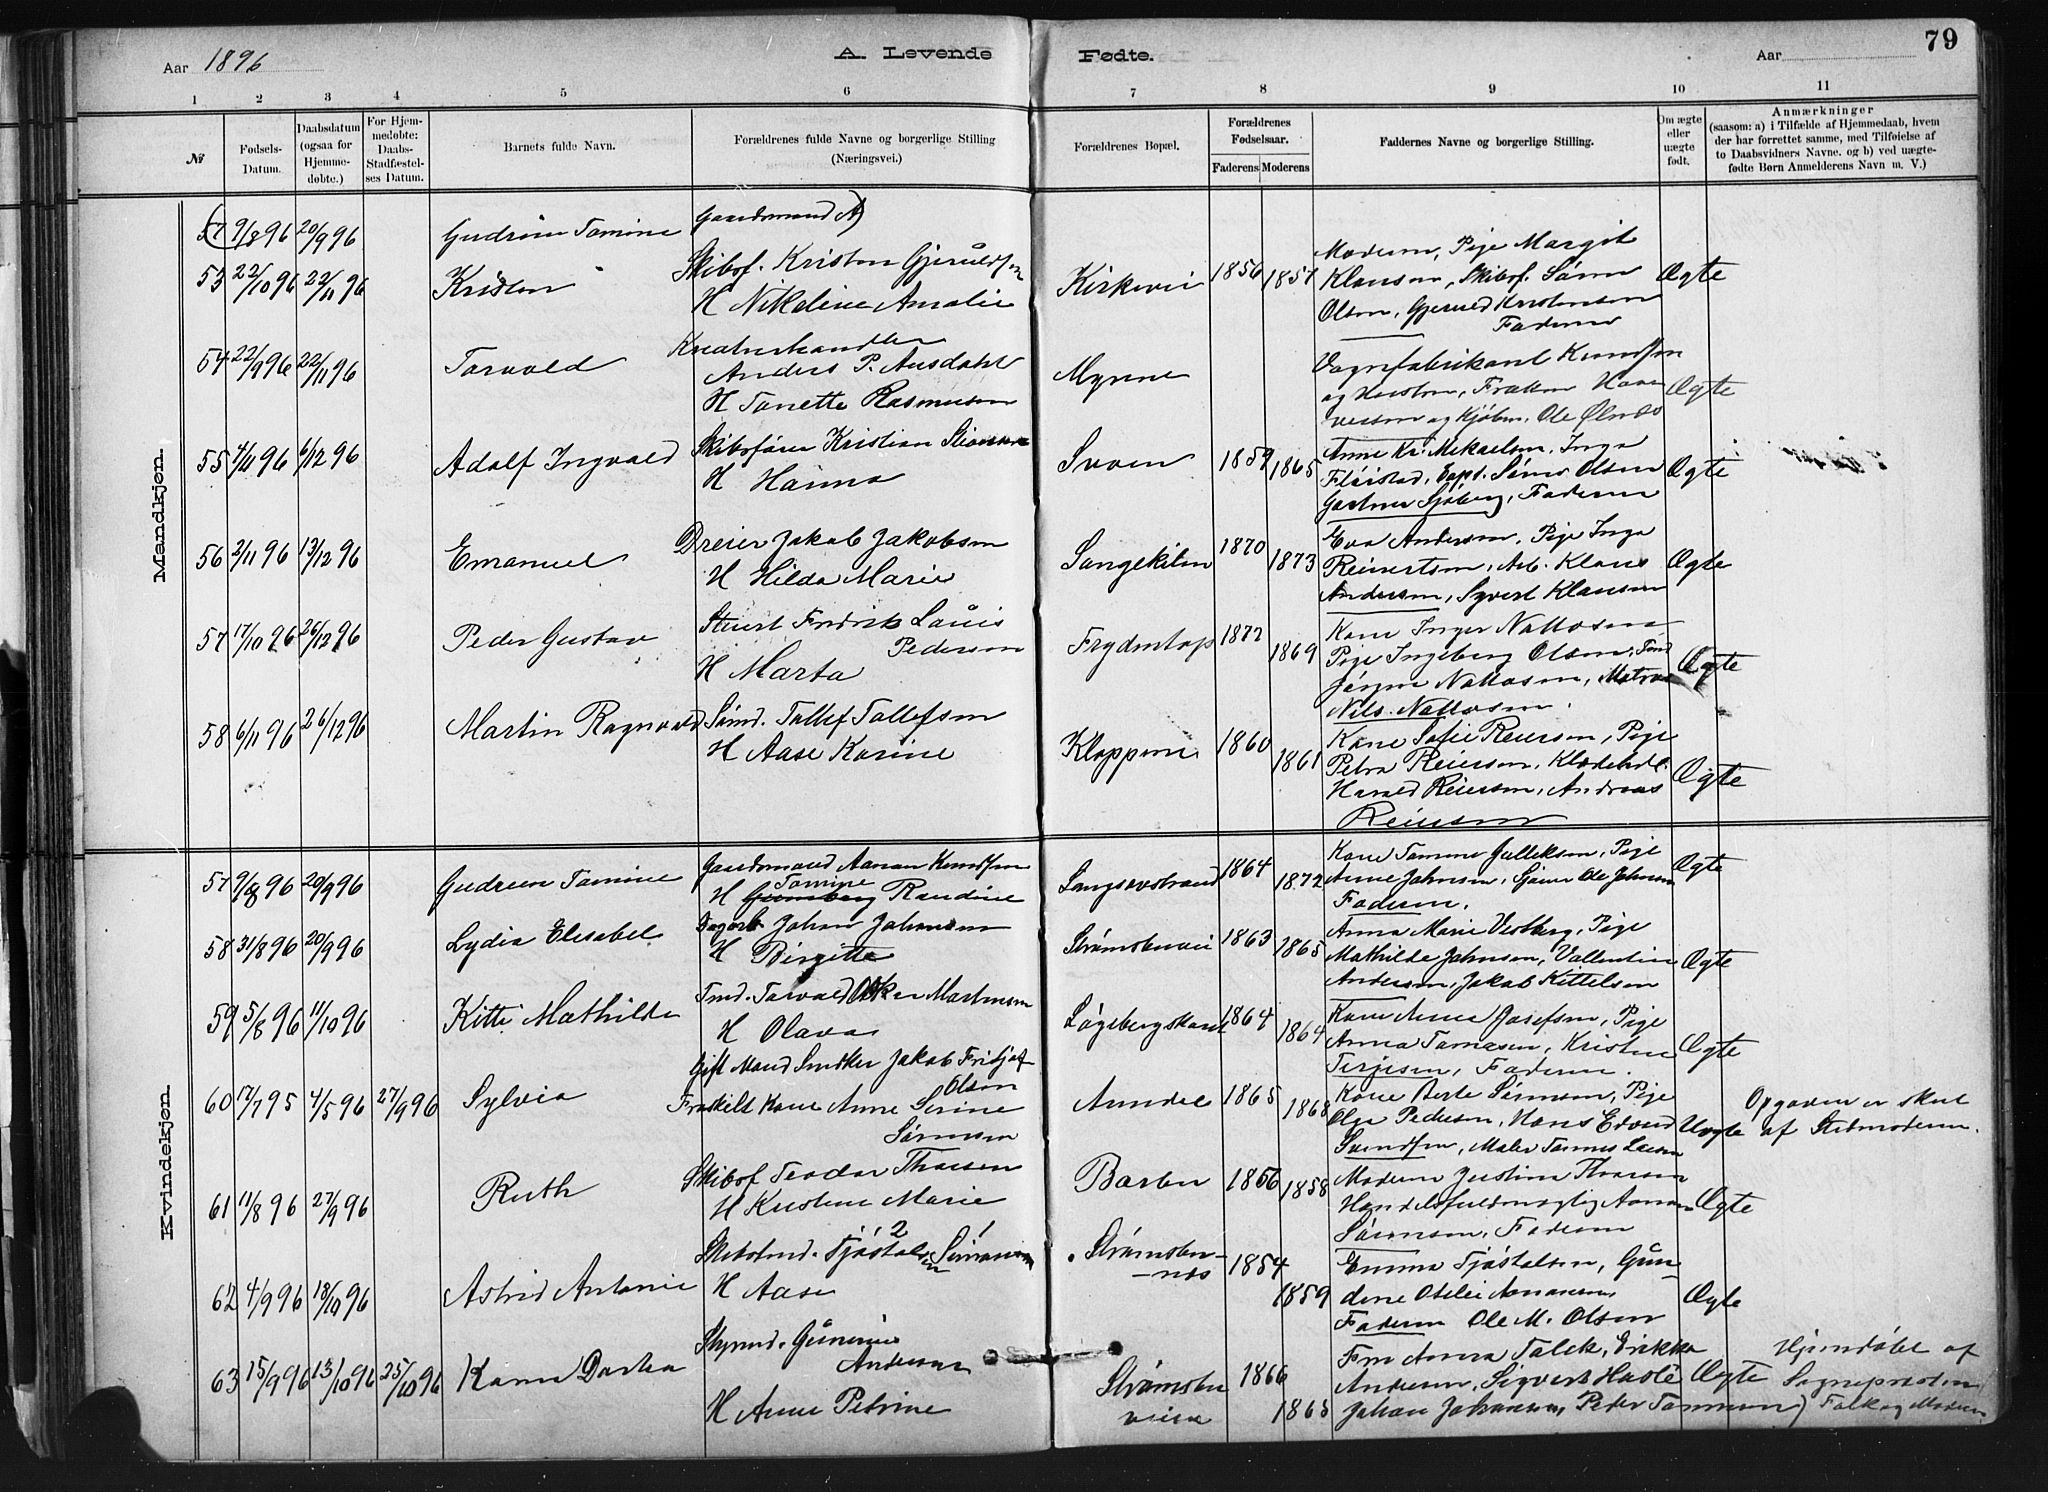 79
Aar 1896
A. Levende Fødte.
Aar
1 2 3 4 5 6 7 8 9 10 11
№
Fødsels-Datum.
Daabsdatum (ogsaa for Hjemmedøbte.)
For Hjemmedøbte: Daabs-Stadfæstelses Datum.
Barnets fulde Navn.
Forældrenes fulde Navne og borgerlige Stilling (Næringsvei.)
Forældrenes Bopæl.
Forældrenes Fødselsaar.
Faderens Moderens
Faddernes Navne og borgerlige Stilling.
Om ægte eller uægte født.
Anmærkninger
(saasom: a) i Tilfælde af Hjemmedaab, hvem der har forrettet samme, med Tilføielse af to Daabsvidners Navne. og b) ved uægtefødte Børn Anmelderens Navn m. V.)
Mandkjøn.
(57 9/8 96 20/9 96 Gudrun Tomine Gaardmand A)
53 22/10 96 22/11 96 Kristen Skibsf. Kristen Gjeruldsen
H Nikoline Amalie
Kirkevei 1856 1857
Moderen, Pige Margit
Klausen, Skibsf. Sørn
Olsen, Gjeruld Kristensen
Faderen
Ægte
54 22/9 96 22/11 96 Torvald Kreaturhandler
Anders P. Ausdahl
H Tonette Rasmussen
Myrene
Vognfabrikant Knudsen
og Hustru, Frøken Haav
versen og Kjøbm. Ole Ølnæs
Ægte
55 4/11 96 6/12 96 Adolf Ingvald Skibsfører Kristian
H Hanna
Svoen 1859 1865
Anne Kr. Mikaelsen, Inga
Fløistad, Capt. Sørn Olsen
Gartner Sjøberg, Faderen
Ægte
56 2/11 96 13/12 96 Emanuel Dreier Jakob Jakobsen
H Hilda Marie
Songekilen 1870 1873
Eva Andersen, Pige Inga
Reinertsen, Arb. Klaus
Andersen, Syvert Klausen
Ægte
57 17/10 96 26/12 96 Peder Gustav Stuert Fredrik Louis
Pedersen
H Marta
Frydentop 1872 1869
Kone Inger
Pige Ingeborg Olsen, Tømd
Jørgen
Nils
Ægte
58 6/11 96 26/12 96 Martin Ragnvald Sømd. Tallef Tallefsen
H Aase Karine
Kloppene 1860 1861
Kone Sofie Reiersen, Pige
Petra Reiersen, Klædehdl.
Harald Reiersen, Andreas
Reiersen
Ægte
Kvindekjøn.
57 9/8 96 20/9 96 Gudrun Tomine Gaardmand Aanan Knudsen
Tomine
H Gunborg Randine
Langsevstrand 1864 1872
Kone Tomine Gulleksen, Pige
Anne Johnsen, Ole Johnsen
Faderen.
Ægte
58 31/8 96 20/9 96 Lydia Elisabet Dagarb. Johan Johansen
H Birgitte
Strømsbuvei 1863 1865
Anna Marie Vestberg, Pige
Mathilde Johnsen, Vallentin
Andersen, Jakob Kittelsen
Ægte
59 5/8 96 11/10 96 Kitti Mathilde Tmd. Torvald Osker Martinsen
H Olava
Løgebergskaret 1864 1864
Kone Anna Josefsen, Pige
Anna Tomasen, Kristen
Terjesen, Faderen.
Ægte
60 17/7 95 4/5 96 27/9 96 Sylvia Gift Mand Snedker Jakob Fridjof
Olsen
Fraskilt Kone Anne Serine
Sørensen
Arendal 1865 1868
Kone Berte Sørensen, Pige
Olga Pedersen, Hans Edvard
Svendsen, Maler Tomas Larsen
Uægte
Opgaven er sket
af Stedmoderen.
61 11/8 96 27/9 96 Ruth Skibsf Teodor Thorsen
H Kristine Marie
Barbu 1856 1858
Moderen Justine Thorsen
Handelsfuldmægtig Aanon
Sørensen, Faderen
Ægte
62 4/9 96 18/10 96 Astrid Antonie Skibstmd. Tjøstel
H Aase
Strømsbu-
næs 1854 1859
Emma Tjøstelsen, Gun-
dine Otelie Aanonsen
Faderen Ole M. Olsen
Ægte
63 15/9 96 13/10 96 25/10 96 Karen Dortea Styrmd. Gunerius
Andersen
H Anne Petrine
Strømsbu
veien 1866 1865
Fru Anna Falck, Erikka
Andersen, Sigvert Hasle
Johan Johansen, Peder Tommesen)
Ægte
Hjemdøbt af
Sognepresten
Falk og Moderen